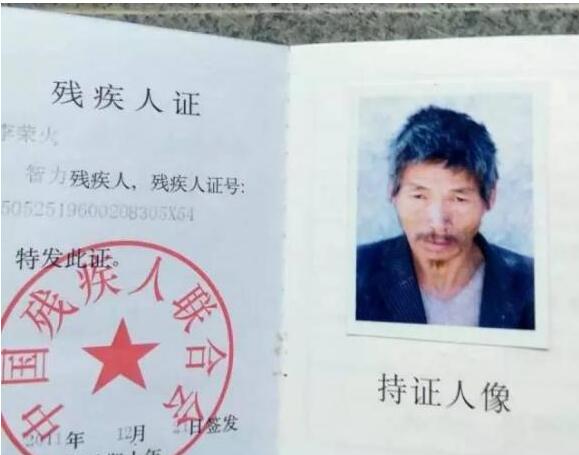 残疾人证
李荣火
智力残疾人，残疾人证号：
5052519600208305X54
特发此证。
中国残疾人联合会
2011年 12月 21日签发
持证人像